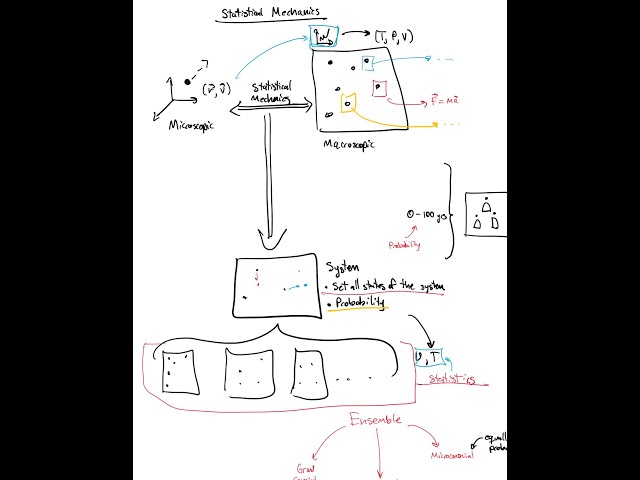 Statistical Mechanics
(T, P, V)
(r⃗, v⃗)
Statistical
Mechanics
F⃗ = ma⃗
Microscopic
Macroscopic
0-100 yrs
Probability
System
• Set all states of the system
• Probability
U, T
Statistics
Ensemble
Microcanonical
Grand